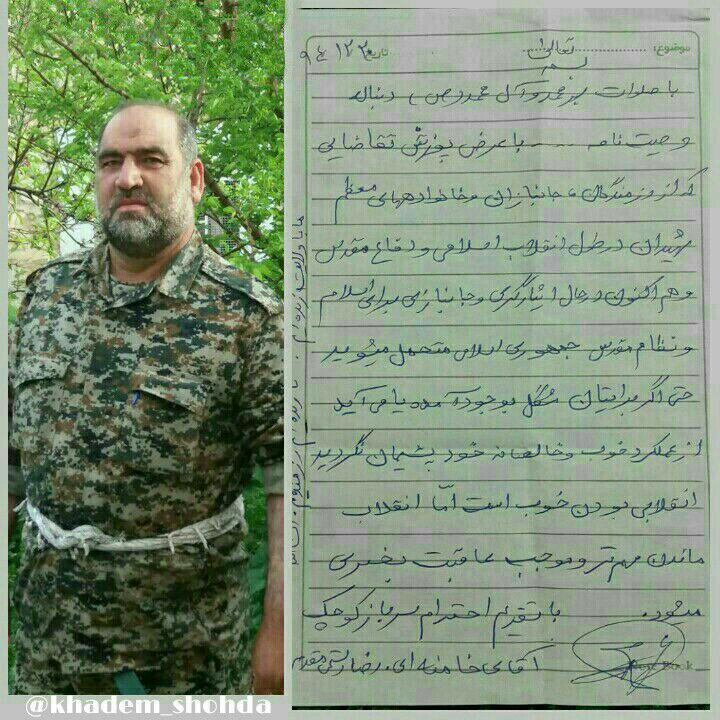 موضوع: بسمه تعالی تاریخ ۹۴/۱۲/۲
با صلوات بر محمد و آل محمد (ص) دنباله
وصیت نامه ---- با عرض پوزش تقاضایی
که از رزمندگان، جانبازان و خانوادههای معظم
شهیدان در طول انقلاب اسلامی و دفاع مقدس
و هم اکنون در حال ایثارگری و جانبازی برای اسلام
و نظام مقدس جمهوری اسلامی متحمل میشوید
حتی اگر برایتان مشکل بوجود آمده یا می آید
از عملکرد خوب و خالصانه خود پشیمان نگردید
انقلابی بودن خوب است امّا انقلابی
ماندن مهم تر و موجب عاقبت بخیری
میشود. با تقدیم احترام سرباز کوچک
آقای خامنه ای.
ما با ولایت زنده ایم. تا زنده ایم رزمنده ایم.
Note Book
@khadem_shohda